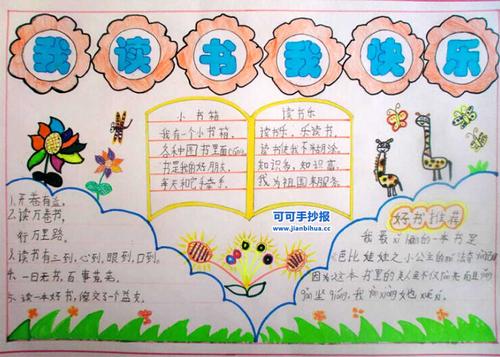 我读书我快乐
小书箱
我有一个小书箱,
各种中国书里面
书是我的好朋友,
每天和它手牵手。
读书乐
读书乐,乐读书,
读书使我不糊涂。
知识多,知识富,
我为祖国来服务。
可可手抄报
www.jianbihua.cc
1、开卷有益。
2、读万卷书,
行万里路。
3、读书有三到,心到、眼到、口到。
4、一日无书,百事荒芜。
5、读一本好书,像交了个益友。
好书推荐
我最xǐ huan的一本书是
《芭比娃娃之小公主的
因为这本书里的